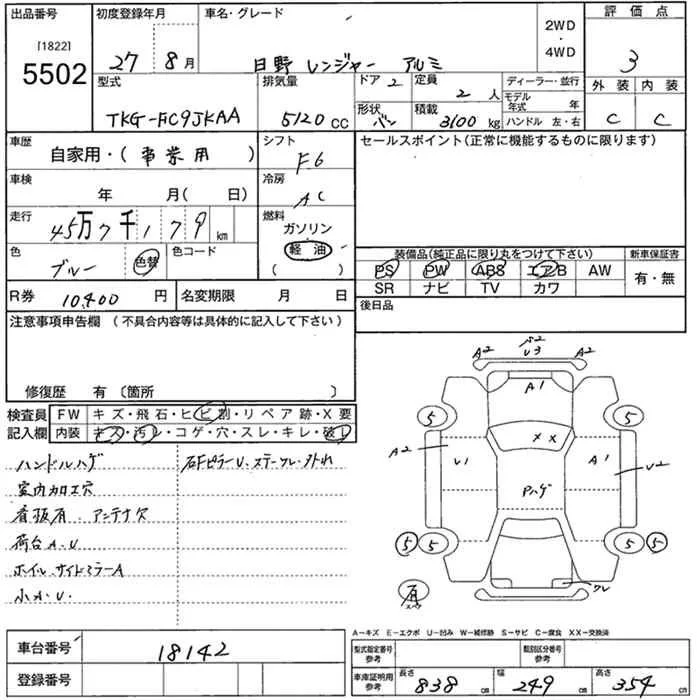 出品番号 初度登録年月 車名・グレード 2WD・4WD 評価点
[1822]
5502
27年 8月 日野 レンジャー アルミ 3
型式 排気量 ドア 2 定員 2人 ディーラー・並行 外装 内装
TKG-FC9JKAA 5120 CC 形状 バン 積載 3100 kg モデル年式 年 C C
ハンドル 左・右
車歴 自家用・(事業用) シフト F6 セールスポイント(正常に機能するものに限ります)
車検 年 月(日) 冷房 AC
走行 45万7千179 km 燃料 ガソリン
軽油
( )
色 ブルー 色替 色コード
装備品(純正品に限り丸をつけて下さい) 新車保証書
PS PW ABS エアB AW 有・無
SR ナビ TV カワ
R券 10400円 名変期限 月 日 後日品
注意事項申告欄(不具合内容等は具体的に記入して下さい)
修復歴 有(箇所 )
検査員記入欄 FW キズ・飛石・ヒビ割・リペア跡・X要
内装 キズ・汚レ・コゲ・穴・スレ・キレ・破レ
ハンドルハゲ 右FピラーU、ステークレ・外れ
室内加工穴
看板有、アンテナ欠
荷台A.U
ホイル、サイドミラーA
小A.U.
A2 U3 A2
A1
5 5
XX
A2 U1 A1 U2
Pハゲ
5 5 5 5
クレ
A-キズ E-エクボ U-凹み W-補修跡 S-サビ C-腐食 XX-交換済
車台番号 18142 型式指定番号 参考 類別区分番号 参考
登録番号 車庫証明用 参考 長さ 838 cm 幅 249 cm 高さ 354 cm